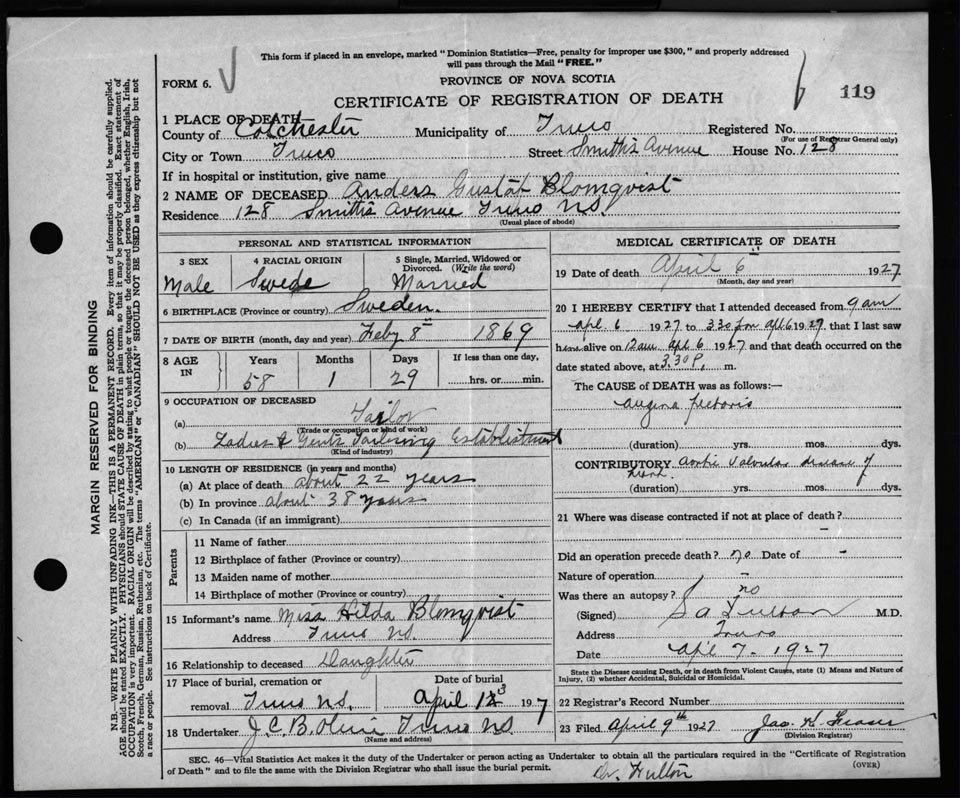 This form if placed in an envelope, marked "Dominion Statistics—Free, penalty for improper use $300," and properly addressed
will pass through the Mail "FREE."
FORM 6.
PROVINCE OF NOVA SCOTIA
119
CERTIFICATE OF REGISTRATION OF DEATH
1 PLACE OF DEATH
County of Colchester Municipality of Truro Registered No.
(For use of Registrar General only)
City or Town Truro Street Smith's Avenue House No. 128
If in hospital or institution, give name
2 NAME OF DECEASED Anders Gustaf Blomqvist
Residence 128 Smith's Avenue Truro N.S.
(Usual place of abode)
PERSONAL AND STATISTICAL INFORMATION
3 SEX 4 RACIAL ORIGIN 5 Single, Married, Widowed or
Divorced. (Write the word)
Male Swede Married
6 BIRTHPLACE (Province or country) Sweden.
7 DATE OF BIRTH (month, day and year) Feby 8th 1869
8 AGE IN Years Months Days If less than one day,
58 1 29 hrs. or min.
9 OCCUPATION OF DECEASED
(a) Tailor
(Trade or occupation or kind of work)
(b) Ladies & Gents Tailoring Establishment
(Kind of industry)
10 LENGTH OF RESIDENCE (in years and months)
(a) At place of death about 22 years
(b) In province about 38 years
(c) In Canada (if an immigrant)
Parents
11 Name of father
12 Birthplace of father (Province or country)
13 Maiden name of mother
14 Birthplace of mother (Province or country)
15 Informant's name Miss Hilda Blomqvist
Address Truro N.S.
16 Relationship to deceased Daughter
17 Place of burial, cremation or Date of burial
removal Truro N.S. April 123 1927
18 Undertaker J. C. B. Olive Truro N.S.
(Name and address)
MEDICAL CERTIFICATE OF DEATH
19 Date of death April 6th 1927
(Month, day and year)
20 I HEREBY CERTIFY that I attended deceased from 9 am
Apl. 6 1927 to 330 pm Apl 6 1927 that I last saw
him alive on 12am Apl 6 1927 and that death occurred on the
date stated above, at 3.30 P. m.
The CAUSE of DEATH was as follows:—
Angina Pectoris
(duration) yrs. mos. dys.
CONTRIBUTORY Aortic Valvular disease of
heart.
(duration) yrs. mos. dys.
21 Where was disease contracted if not at place of death? -
Did an operation precede death? no Date of -
Nature of operation -
Was there an autopsy? no
(Signed) S a Fulton M.D.
Address Truro
Date Apl 7 - 1927
State the Disease causing Death, or in death from Violent Causes, state (1) Means and Nature of
Injury, (2) whether Accidental, Suicidal or Homicidal.
22 Registrar's Record Number
23 Filed April 9th 1927 Jas. H. Fraser
(Division Registrar)
SEC. 46—Vital Statistics Act makes it the duty of the Undertaker or person acting as Undertaker to obtain all the particulars required in the "Certificate of Registration
of Death" and to file the same with the Division Registrar who shall issue the burial permit. (OVER)
Dr. Fulton
MARGIN RESERVED FOR BINDING
N.B.—WRITE PLAINLY WITH UNFADING INK—THIS IS A PERMANENT RECORD. Every item of information should be carefully supplied.
AGE should be stated EXACTLY. PHYSICIANS should STATE CAUSE OF DEATH in plain terms, so that it may be properly classified. Exact statement of
OCCUPATION is very important. RACIAL ORIGIN will be described by stating to what people or tongue the deceased person belonged, whether English, Irish,
Scotch, French, German, Russian, Ruthenian, etc. The terms "AMERICAN" or "CANADIAN" SHOULD NOT BE USED as they express citizenship but not
a race or people. See instructions on back of Certificate.